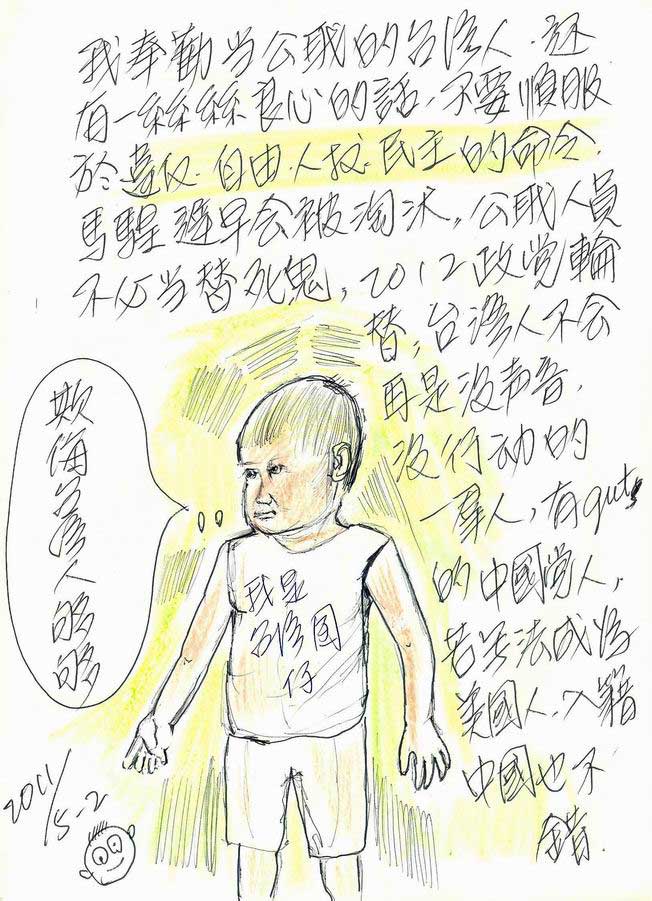 我奉勸当公職的台湾人.还
有一絲絲良心的話.不要順服
於違反.自由.人权.民主的命令.
馬騜遲早会被淘汰,公職人員
不必当替死鬼,2012政党輪
替,台湾人不会
再是没声音,
没行动的
一羣人,有guts
的中國党人,
若无法成為
美國人.入籍
中國也不
錯.
欺侮台湾人够够
我是
台湾國
仔
2011/5-2